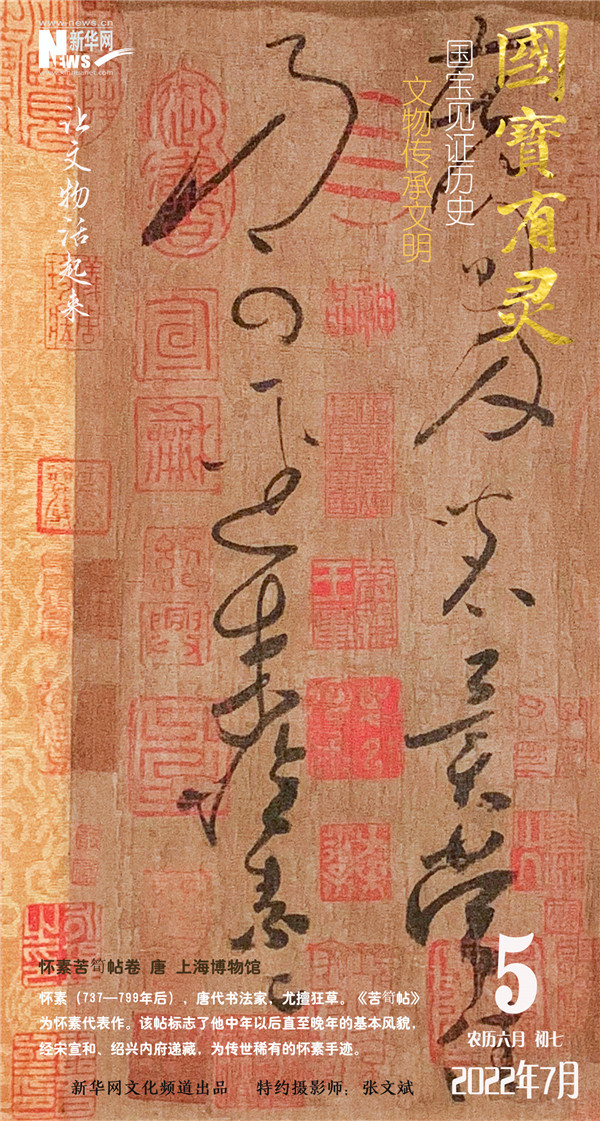 www.news.cn
新华网
News
www.xinhuanet.com
國寶有灵
国宝见证历史
文物传承文明
让文物活起来
苦筍及茗異常
乃可逕來懷素上
神品
宣龢
紹興
怀素苦筍帖卷 唐 上海博物馆
怀素（737—799年后），唐代书法家，尤擅狂草。《苦筍帖》
为怀素代表作。该帖标志了他中年以后直至晚年的基本风貌，
经宋宣和、绍兴内府递藏，为传世稀有的怀素手迹。
新华网文化频道出品 特约摄影师：张文斌
5
农历六月 初七
2022年7月